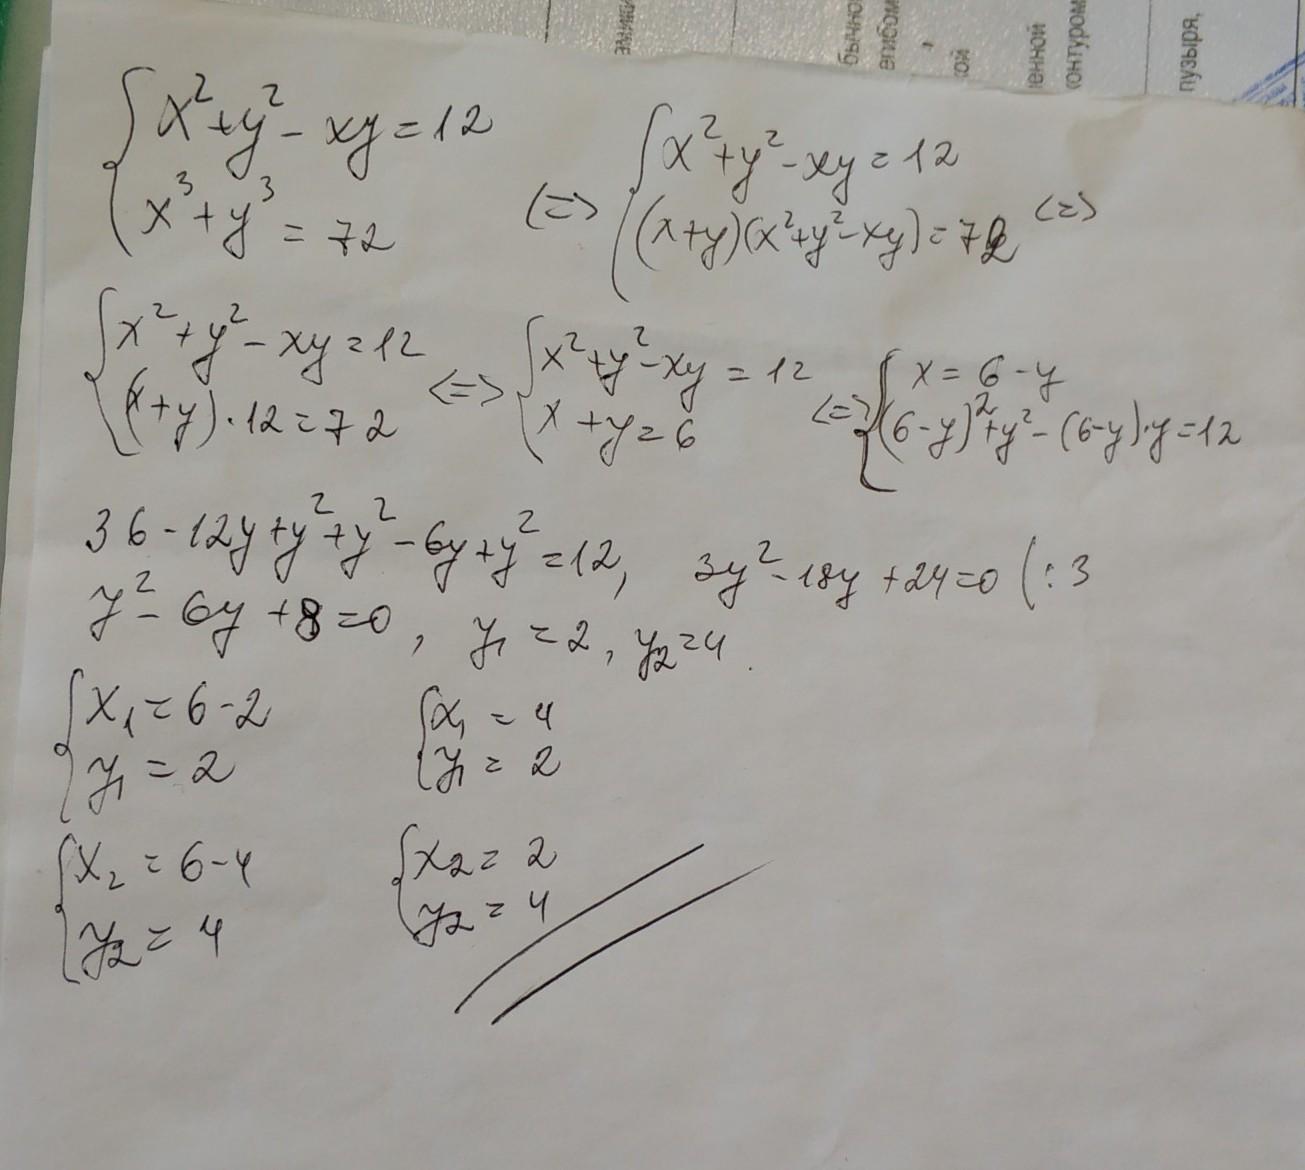 бычно
епибом
,
кой
ленной
контуром
пузыря,
{x²+y²-xy=12
x³+y³=72
<=> {x²+y²-xy=12
(x+y)(x²+y²-xy)=72 <=>
{x²+y²-xy=12
(x+y)·12=72
<=> {x²+y²-xy=12
x+y=6
<=> {x=6-y
(6-y)²+y²-(6-y)·y=12
36-12y+y²+y²-6y+y²=12, 3y²-18y+24=0 (:3
y²-6y+8=0, y₁=2, y₂=4.
{x₁=6-2
y₁=2
{x₁=4
y₁=2
{x₂=6-4
y₂=4
{x₂=2
y₂=4